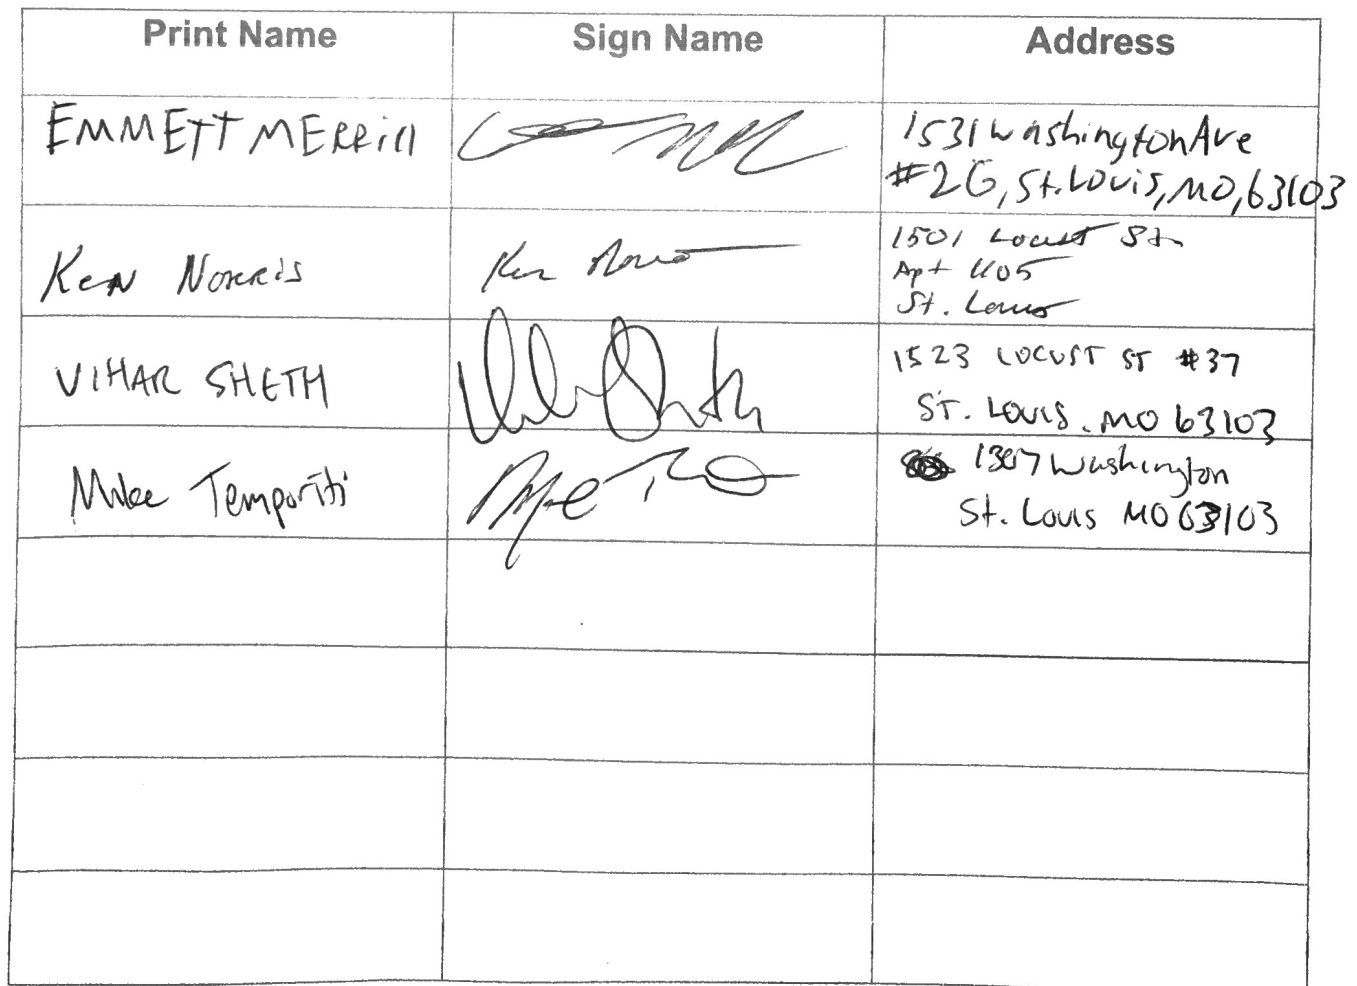 Print Name Sign Name Address
EMMETT MERRill
1531 Washington Ave
#2G, St. Louis, MO, 63103
Ken Norris Ken Norris
1501 Locust St.
Apt 1105
St. Louis
VIHAR SHETH
1523 LOCUST ST #37
ST. LOUIS. MO 63103
Mike Temporiti
1307 Washington
St. Louis MO 63103